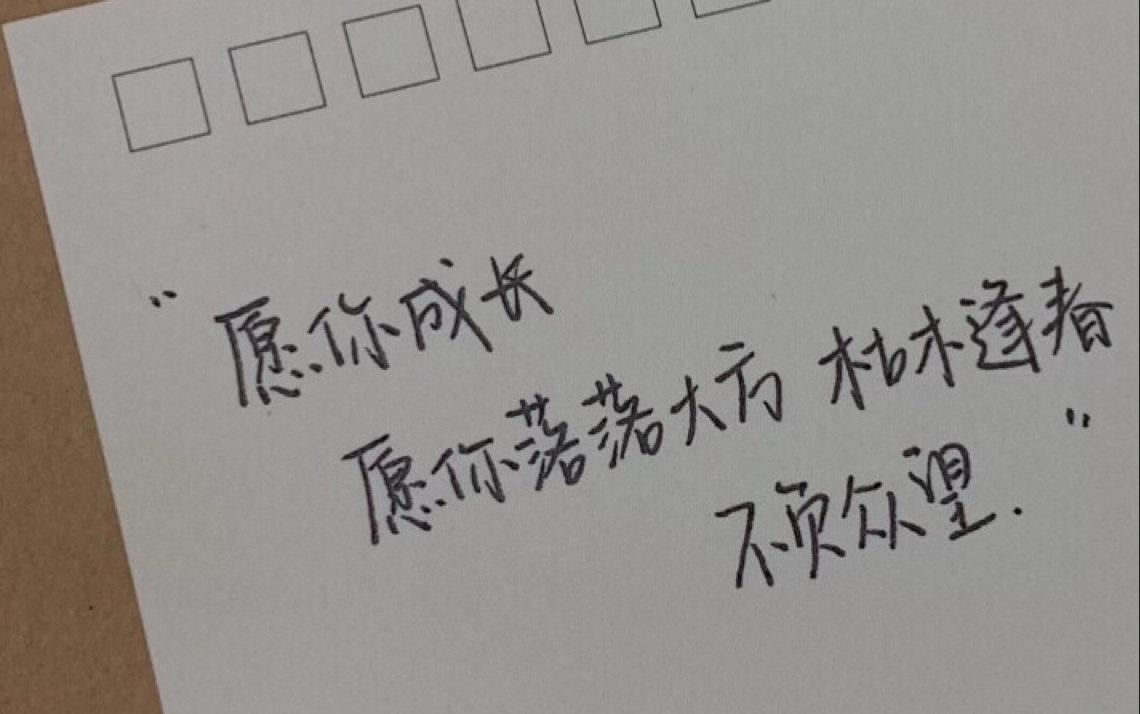 “愿你成长
愿你落落大方 枯木逢春”
不负众望.